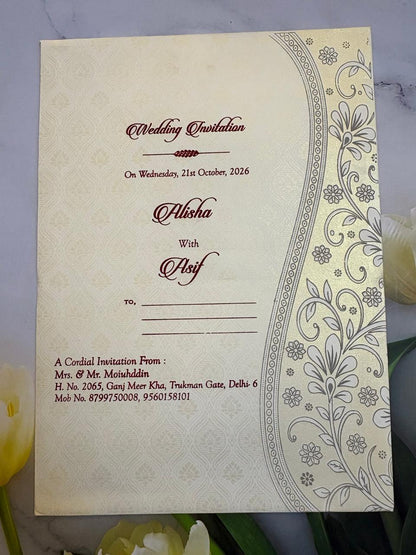 Wedding Invitation
On Wednesday, 21st October, 2026
Alisha
With
Asif
TO,
A Cordial Invitation From :
Mrs. & Mr. Moiuhddin
H. No. 2065, Ganj Meer Kha, Trukman Gate, Delhi- 6
Mob No. 8799750008, 9560158101